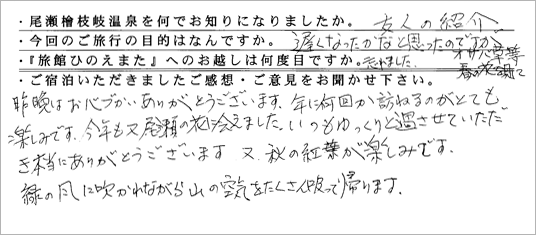 ・尾瀬檜枝岐温泉を何でお知りになりましたか。 友人の紹介
・今回のご旅行の目的はなんですか。 遅くなったかなと思ったのですが、
オサバ草等
・『旅館ひのえまた』へのお越しは何度目ですか。 忘れました。 春の花を観て
・ご宿泊いただきましたご感想・ご意見をお聞かせ下さい。
昨晩はお心づかいありがとうございます。年に何回か訪ねるのがとても
楽しみです。今年も又尾瀬の花に会えました。いつもゆっくりと過させていただ
き本当にありがとうございます 又、秋の紅葉が楽しみです。
緑の風に吹かれながら山の空気をたくさん吸って帰ります。